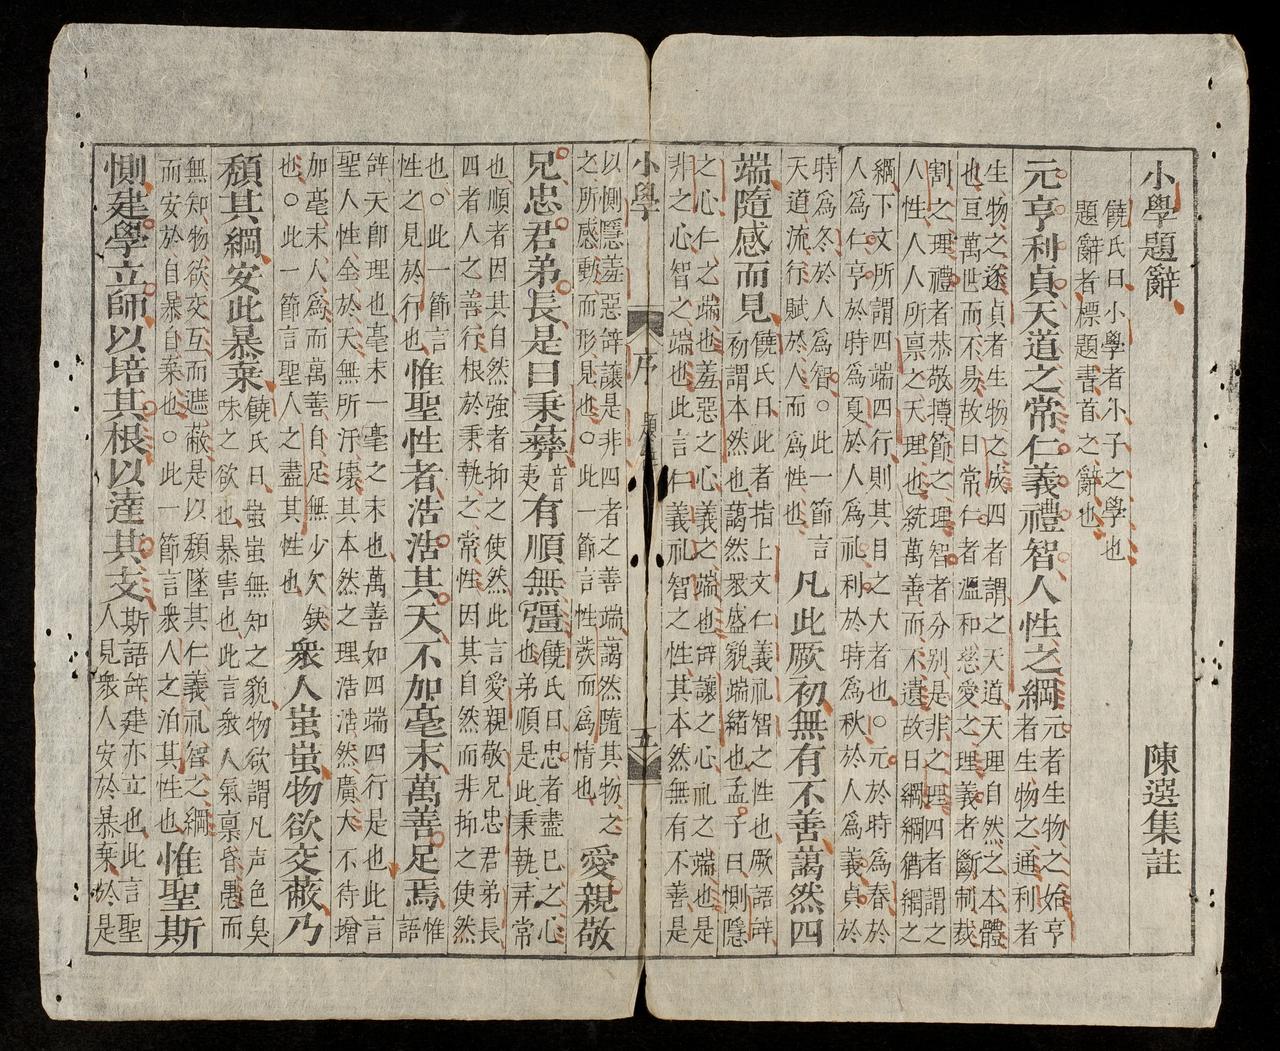 小學題辭　陳選集註
饒氏曰小學者小子之學也
題辭者標題書首之辭也
元亨利貞天道之常仁義禮智人性之綱
元者生物之始亨
者生物之通利者
生物之遂貞者生物之成四者謂之天道天理自然之本體
也亘萬世而不易故曰常仁者溫和慈愛之理義者斷制裁
割之理禮者恭敬撙節之理智者分别是非之理四者謂之
人性人人所禀之天理也統萬善而不遺故曰綱綱猶網之
綱下文所謂四端四行則其目之大者也○元於時爲春於
人爲仁亨於時爲夏於人爲礼利於時爲秋於人爲義貞於
時爲冬於人爲智○此一節言
天道流行賦於人而爲性也
凡此厥初無有不善藹然四
端隨感而見
饒氏曰此者指上文仁義礼智之性也厥語辝
初謂本然也藹然眾盛貌端緒也孟子曰惻隱
之心仁之端也羞惡之心義之端也辝讓之心礼之端也是
非之心智之端也此言仁義礼智之性其本然無有不善是
小學　序　題辭　五
以惻隱羞惡辝讓是非四者之善端藹然隨其物之
之所感動而形見也○此一節言性發而爲情也
愛親敬
兄忠君弟長是曰秉彝
音
夷
有順無彊
饒氏曰忠者盡己之心
也弟順是此秉執彛常
也順者因其自然強者抑之使然此言愛親敬兄忠君弟長
四者人之善行根於秉執之常性因其自然而非抑之使然
也○此一節言
性之見於行也
惟聖性者浩浩其天不加毫末萬善足焉
惟
語
辝天即理也毫末一毫之末也萬善如四端四行是也此言
聖人性全於天無所汙壊其本然之理浩浩然廣大不待增
加毫末人爲而萬善自足無少欠鈌
也○此一節言聖人之盡其性也
衆人蚩蚩物欲交蔽乃
頹其綱安此暴棄
饒氏曰蚩蚩無知之貌物欲謂凡声色臭
味之欲也暴害也此言衆人氣禀昏愚而
無知物欲交互而遮蔽是以頹墜其仁義礼智之綱
而安於自暴自棄也○此一節言衆人之泊其性也
惟聖斯
惻建學立師以培其根以達其支
斯語辝建亦立也此言聖
人見衆人安於暴棄於是